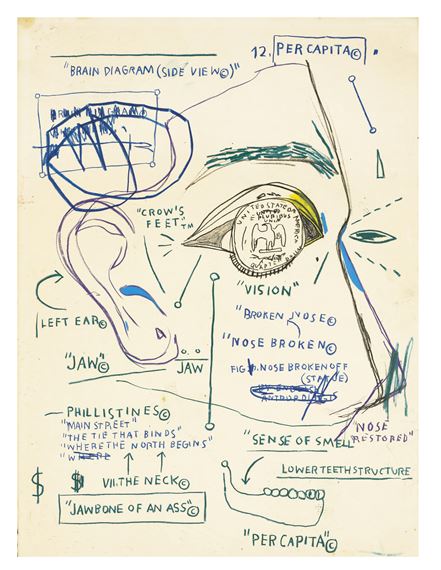 12. PER CAPITA©
"BRAIN DIAGRAM (SIDE VIEW©)"
"CROW'S
FEET"™
UNITED STATES OF AMERICA
E PLURIBUS
UNUM
"VISION"
LEFT EAR©
"BROKEN NOSE©
"NOSE BROKEN©
FIG.
NOSE BROKEN OFF
(STATUE)
"JAW"©
JAW
PHILLISTINES©
"MAIN STREET"
"THE TIE THAT BINDS"
"WHERE THE NORTH BEGINS"
"SENSE OF SMELL"
"NOSE
RESTORED"
LOWER TEETH STRUCTURE
$
VII. THE NECK©
"JAWBONE OF AN ASS"©
"PER CAPITA"©